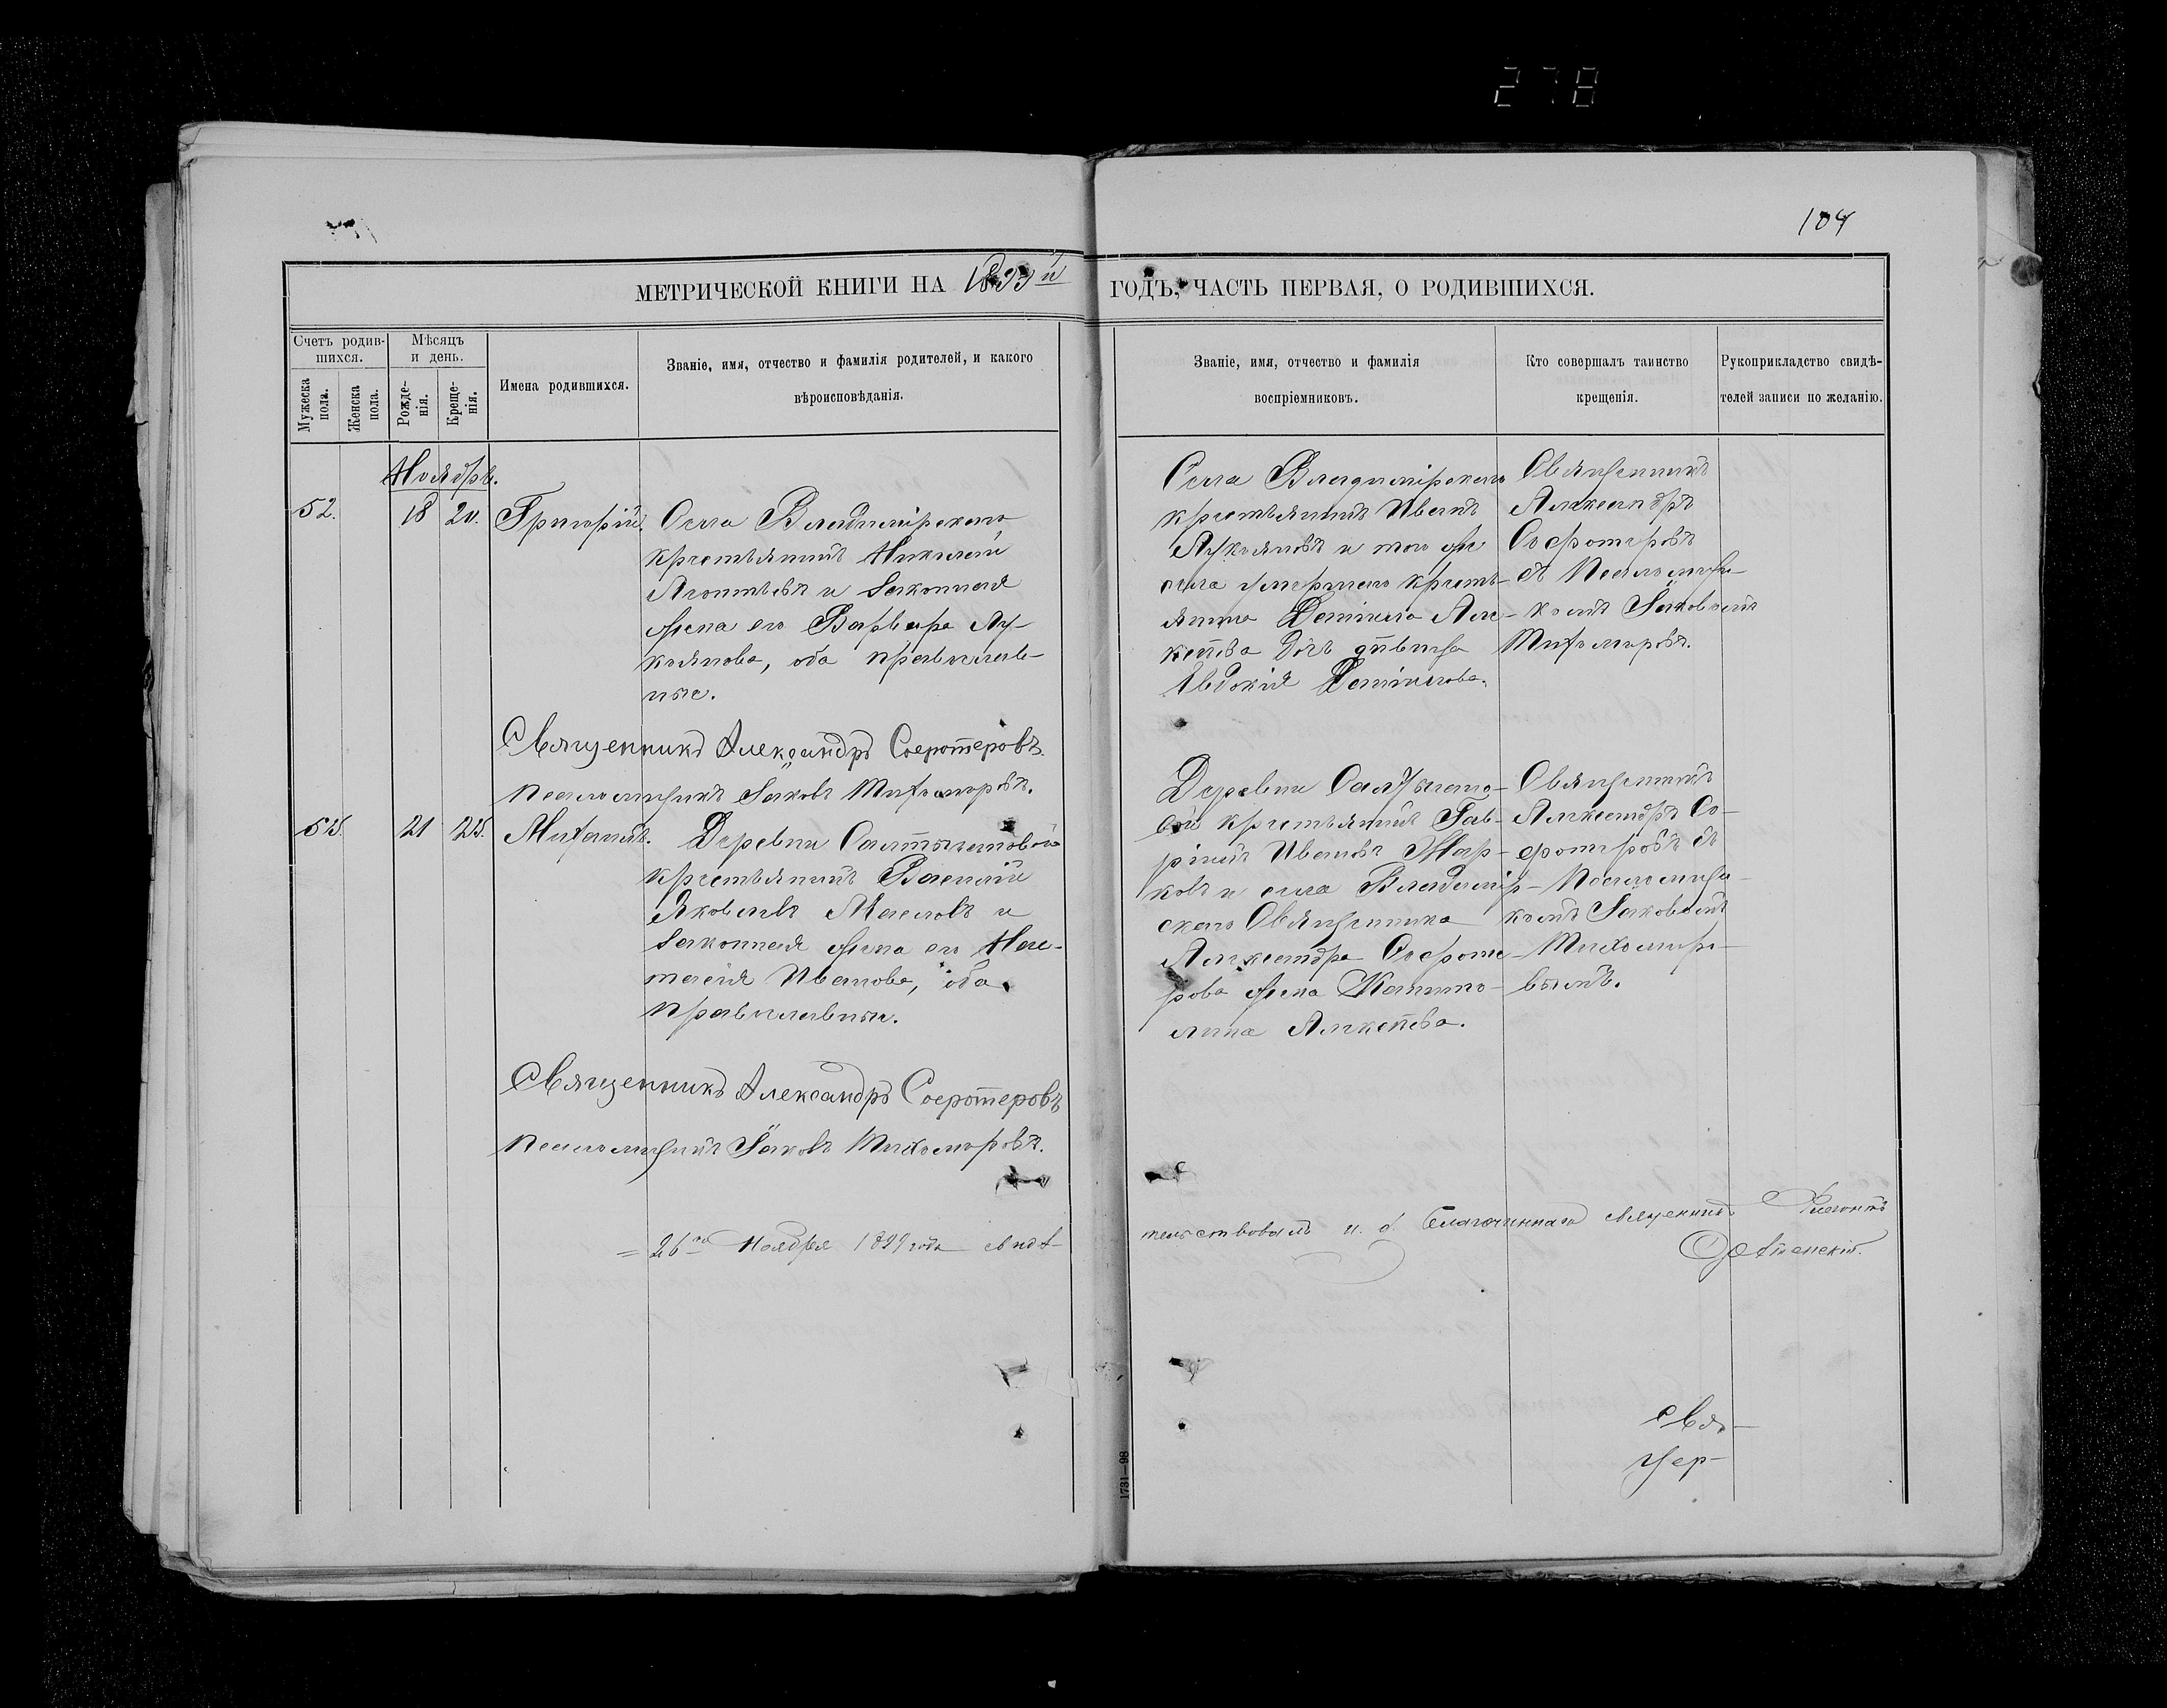 278
104
МЕТРИЧЕСКОЙ КНИГИ НА 1899й ГОДЪ, ЧАСТЬ ПЕРВАЯ, О РОДИВШИХСЯ.
Счетъ родив-
шихся.
Мужеска пола.
Женска пола.
Мѣсяцъ
и день.
Рожде-
нія.
Креще-
нія.
Имена родившихся.
Званіе, имя, отчество и фамилія родителей, и какого
вѣроисповѣданія.
Званіе, имя, отчество и фамилія
воспріемниковъ.
Кто совершалъ таинство
крещенія.
Рукоприкладство свидѣ-
телей записи по желанію.
Ноябрь.
52. 18 20. Григорій. Села Владимірскаго
крестьянинъ Николай
Леонтьевъ и законная
жена его Варвара Лу-
кьянова, оба православ-
ные.
Села Владимірскаго
крестьянинъ Иванъ
Лукьяновъ и того же
села умершаго кресть-
янина Даніила Але-
ксѣева дочь дѣвица
Евдокія Даніилова.
Священникъ
Александръ
Соеротеровъ
съ Псаломщи-
комъ Іаковомъ
Тихомировъ.
Священникъ Александръ Соеротеровъ.
Псаломщикъ Іаковъ Тихомировъ.
53. 21 25. Михаилъ. Деревни Салтыгановой
крестьянинъ Василій
Яковлевъ Масловъ и
законная жена его Нас-
тасія Иванова, оба
православные.
Деревни Салтыгано-
вой крестьянинъ Гав-
ріилъ Ивановъ Мар-
ковъ и села Владимір-
скаго Священника
Александра Соероте-
рова жена Капито-
лина Алексѣева.
Священникъ
Александръ Со-
еротеровъ съ
Псаломщи-
комъ Іаковомъ
Тихомиро-
вымъ.
Священникъ Александръ Соеротеровъ
Псаломщикъ Іаковъ Тихомировъ.
= 26го Ноября 1899 года свидѣ-
тельствовалъ и. д. Благочиннаго священникъ
Свя-
Цер-
1731—98